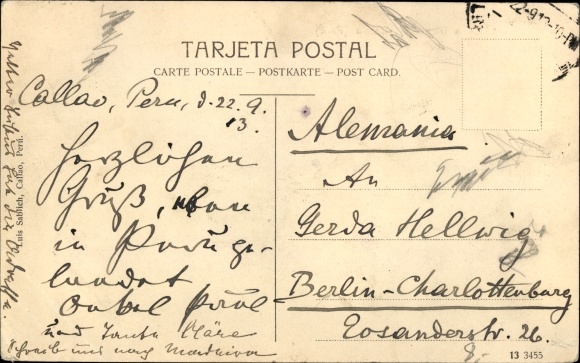 TARJETA POSTAL
CARTE POSTALE – POSTKARTE – POST CARD.
Callao, Peru, d. 22. 9.
13.
Herzlichen
Gruß, eben
in Peru ge-
landet
Onkel Paul
und Tante Kläre
Schreib uns nach
Luis Sablich, Callao, Perú.
Alemania
An
Gerda Hellwig
Berlin-Charlottenburg
Eosanderstr. 26.
13 3455